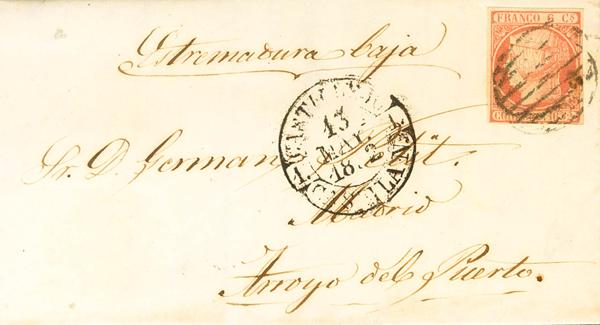 Estremadura baja
FRANCO 6 Cs
13
MAY
Sr. D. German
Madrid
Arroyo del Puerto.